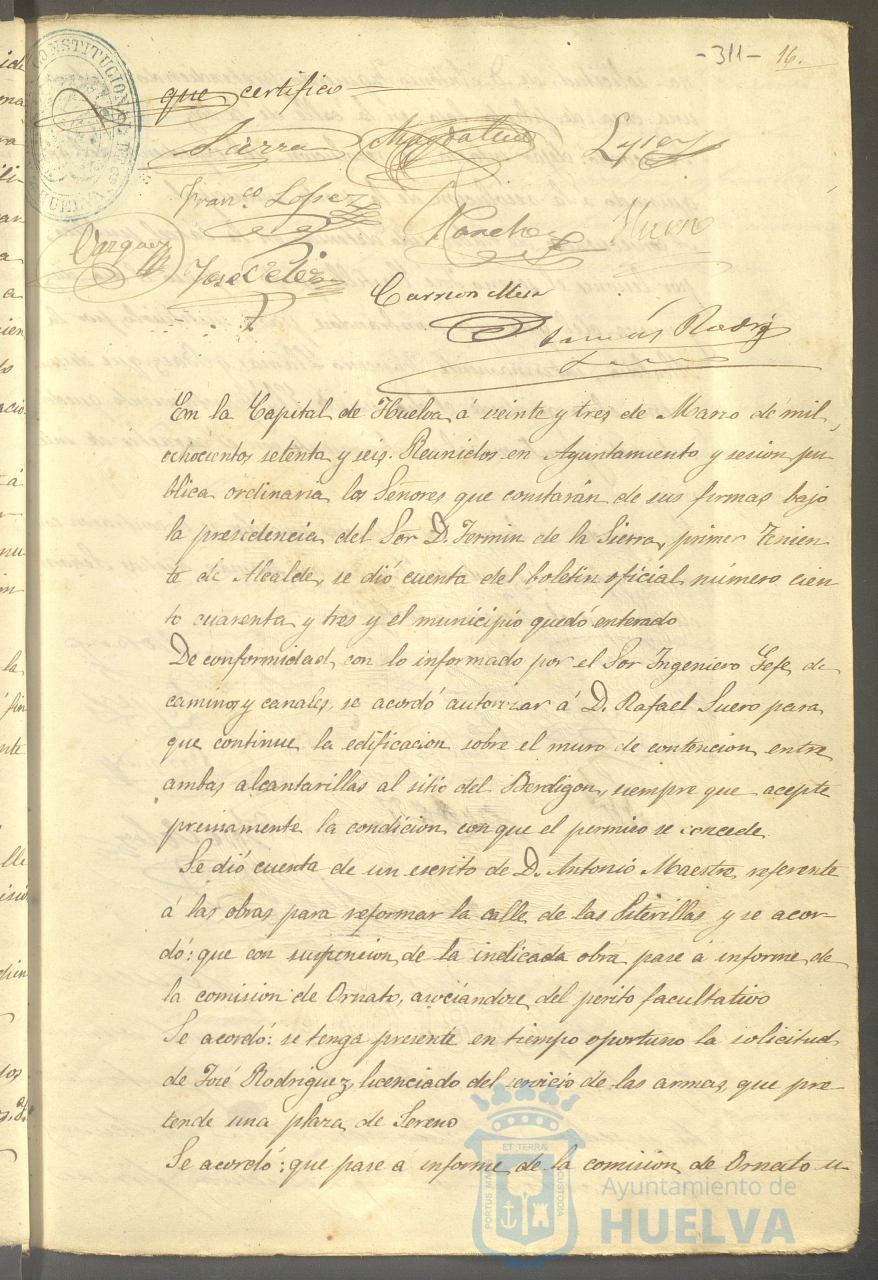 -311- 16.
que certifico
Sierra Magdalena Lopez
Franco Lopez
Sancho Suero
Vazquez
Jose Velez
Carrion Mesa
Tomás Rodrig
En la Capital de Huelva á veinte y tres de Marzo de mil,
ochocientos setenta y seis. Reunidos en Ayuntamiento y sesion pu-
blica ordinaria los Señores que constarán de sus firmas bajo
la presidencia del Sor D. Fermin de la Sierra, primer Tenien-
te de Alcalde, se dió cuenta del boletin oficial número cien-
to cuarenta y tres y el municipio quedó enterado
De conformidad con lo informado por el Sor Ingeniero Gefe de
caminos y canales, se acordó autorizar á D. Rafael Suero para
que continue la edificacion sobre el muro de contencion entre
ambas alcantarillas al sitio del Berdigon, siempre que acepte
previamente la condicion con que el permiso se concede
Se dió cuenta de un escrito de D. Antonio Maestre, referente
á las obras para reformar la calle de las Siterillas y se acor-
dó: que con suspension de la indicada obra pase á informe de
la comision de Ornato, asociándose del perito facultativo
Se acordó: se tenga presente en tiempo oportuno la solicitud
de José Rodriguez, licenciado del servicio de las armas, que pre-
tende una plaza de Sereno
Se acordó: que pase á informe de la comision de Ornato u-
CONSTITUCIONAL
HUELVA
PORTUS MARIS ET TERRA CUSTODIA
Ayuntamiento de
HUELVA